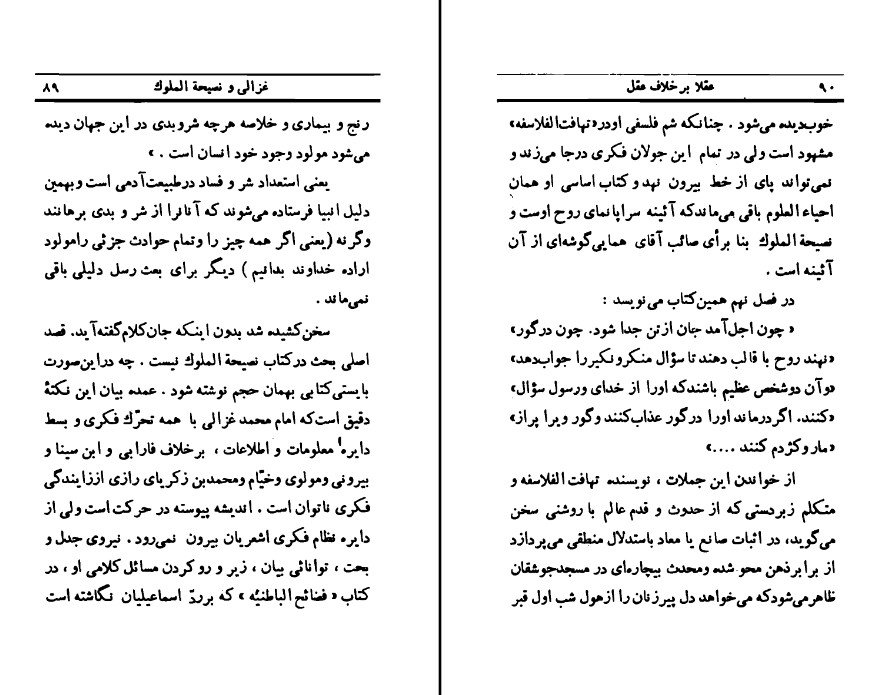 غزالی و نصیحة الملوك ۸۹
رنج و بیماری و خلاصه هرچه شروبدی در این جهان دیده
می‌شود مولود وجود خود انسان است . »
یعنی استعداد شر و فساد درطبیعت‌آدمی است وبهمین
دلیل انبیا فرستاده می‌شوند که آنانرا از شر و بدی برهانند
وگرنه (یعنی اگر همه چیز را وتمام حوادث جزئی رامولود
اراده خداوند بدانیم ) دیگر برای بعث رسل دلیلی باقی
نمی‌ماند .
سخن‌کشیده شد بدون اینکه جان‌کلام‌گفته‌آید. قصد
اصلی بحث درکتاب نصیحة الملوك نیست . چه دراین‌صورت
بایستی‌کتابی بهمان حجم نوشته شود . عمده بیان این نکتهٔ
دقیق است‌که امام محمد غزالی با همه تحرّك فکری و بسط
دایرهٔ معلومات و اطلاعات ، برخلاف فارابی و ابن سینا و
بیرونی ومولوی وخیّام ومحمدبن زکریای رازی اززایندگی
فکری ناتوان است . اندیشه پیوسته در حرکت است ولی از
دایره نظام فکری اشعریان بیرون نمی‌رود . نیروی جدل و
بحث ، توانائی بیان ، زیر و رو کردن مسائل کلامی او ، در
کتاب « فضائح الباطنیّه » که برردّ اسماعیلیان نگاشته است
۹۰ عقلا برخلاف عقل
خوب‌دیده می‌شود . چنانکه شم فلسفی اودر«تهافت‌الفلاسفه»
مشهود است ولی در تمام این جولان فکری درجا می‌زند و
نمی‌تواند پای از خط بیرون نهد وکتاب اساسی او همان
احیاء العلوم باقی می‌ماندکه آئینه سراپانمای روح اوست و
نصیحة الملوك بنا برأی صائب آقای همایی‌گوشه‌ای از آن
آئینه است .
در فصل نهم همین‌کتاب می‌نویسد :
« چون اجل‌آمد جان ازتن جدا شود. چون درگور»
«نهند روح با قالب دهند تا سؤال منکرونکیررا جواب‌دهد»
«وآن دوشخص عظیم باشندکه اورا از خدای ورسول سؤال»
«کنند. اگردرماند اورا درگور عذاب‌کنند وگور ویرا پراز»
«مار وکژدم کنند ....»
از خواندن این جملات ، نویسنده تهافت الفلاسفه و
متکلم زبردستی که از حدوث و قدم عالم با روشنی سخن
می‌گوید، در اثبات صانع یا معاد باستدلال منطقی می‌پردازد
از برابرذهن محو شده ومحدث بیچاره‌ای در مسجدجوشقان
ظاهرمی‌شودکه می‌خواهد دل پیرزنان را ازهول شب اول قبر